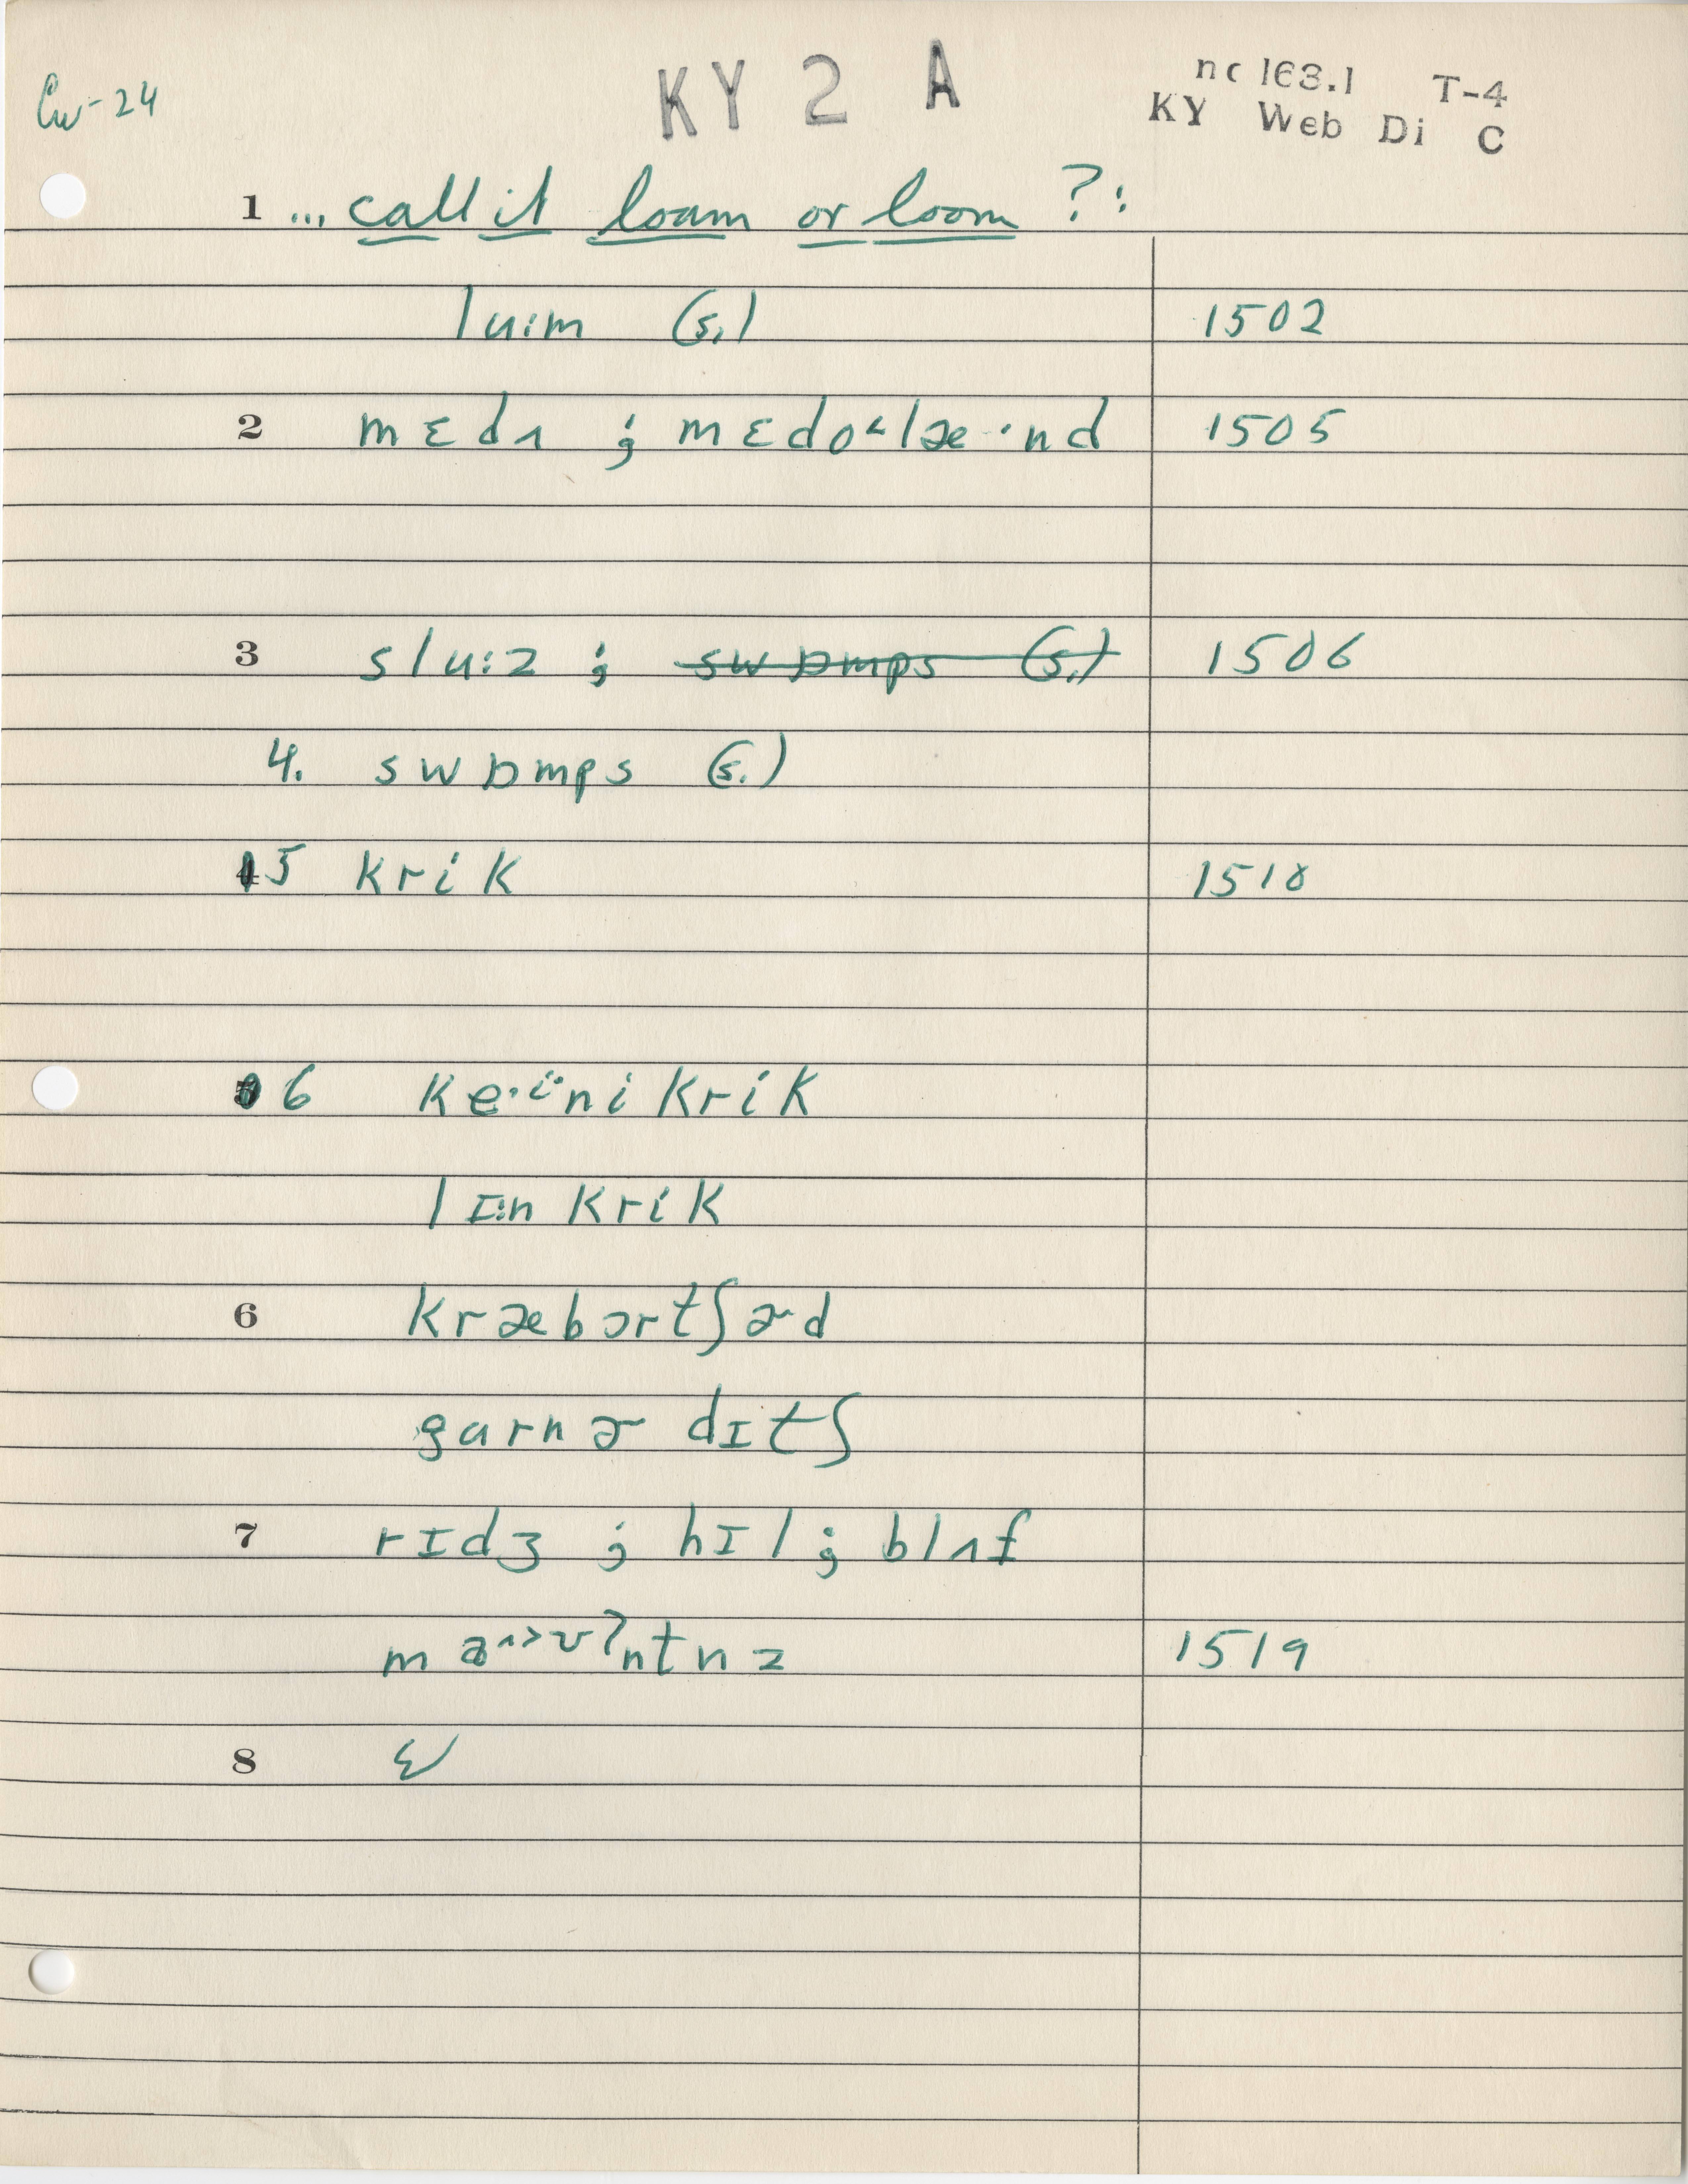 Cw-24
KY 2 A
nc 163.1 T-4
KY Web Di C
1 ... call it loam or loom ?:
luːm (s.) 1502
2 mɛdʌ ; mɛdo˂læ·nd 1505
3 sluːz ; swɒmps (s.) 1506
4. swɒmps (s.)
5 krik 1518
6 ke·ɪ̈ni krik
lɪːn krik
6 kræbɔrtʃɚd
garnɚ dɪtʃ
7 rɪdʒ ; hɪl ; blʌf
1519
8